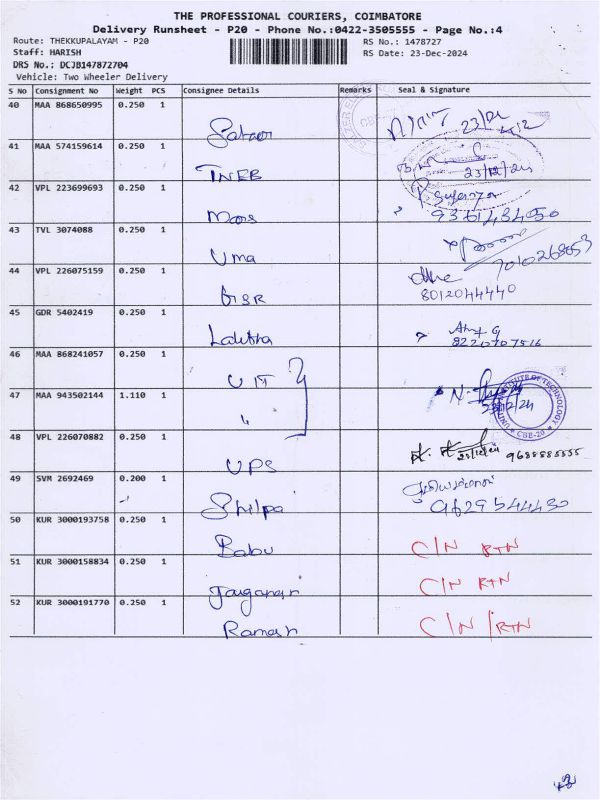 THE PROFESSIONAL COURIERS, COIMBATORE
Delivery Runsheet - P20 - Phone No.:0422-3505555 - Page No.:4
Route: THEKKUPALAYAM - P20 RS No.: 1478727
Staff: HARISH RS Date: 23-Dec-2024
DRS No.: DCJB147872704
Vehicle: Two Wheeler Delivery
S No Consignment No Weight PCS Consignee Details Remarks Seal & Signature
40 MAA 868650995 0.250 1
23/12
41 MAA 574159614 0.250 1
TNEB 23/12/24
42 VPL 223699693 0.250 1
43 TVL 3074088 0.250 1
Uma 7010268053
44 VPL 226075159 0.250 1
8012044440
45 GDR 5402419 0.250 1
8220707516
46 MAA 868241057 0.250 1
UIT
47 MAA 943502144 1.110 1
23/12/24
INSTITUTE OF TECHNOLOGY
CBE-20
48 VPL 226070882 0.250 1
UPS 23/12/24
49 SVM 2692469 0.200 1
Shilpa 9629544430
50 KUR 3000193758 0.250 1
Babu C/N RTN
51 KUR 3000158834 0.250 1
C/N RTN
52 KUR 3000191770 0.250 1
Ramesh C/N/RTN